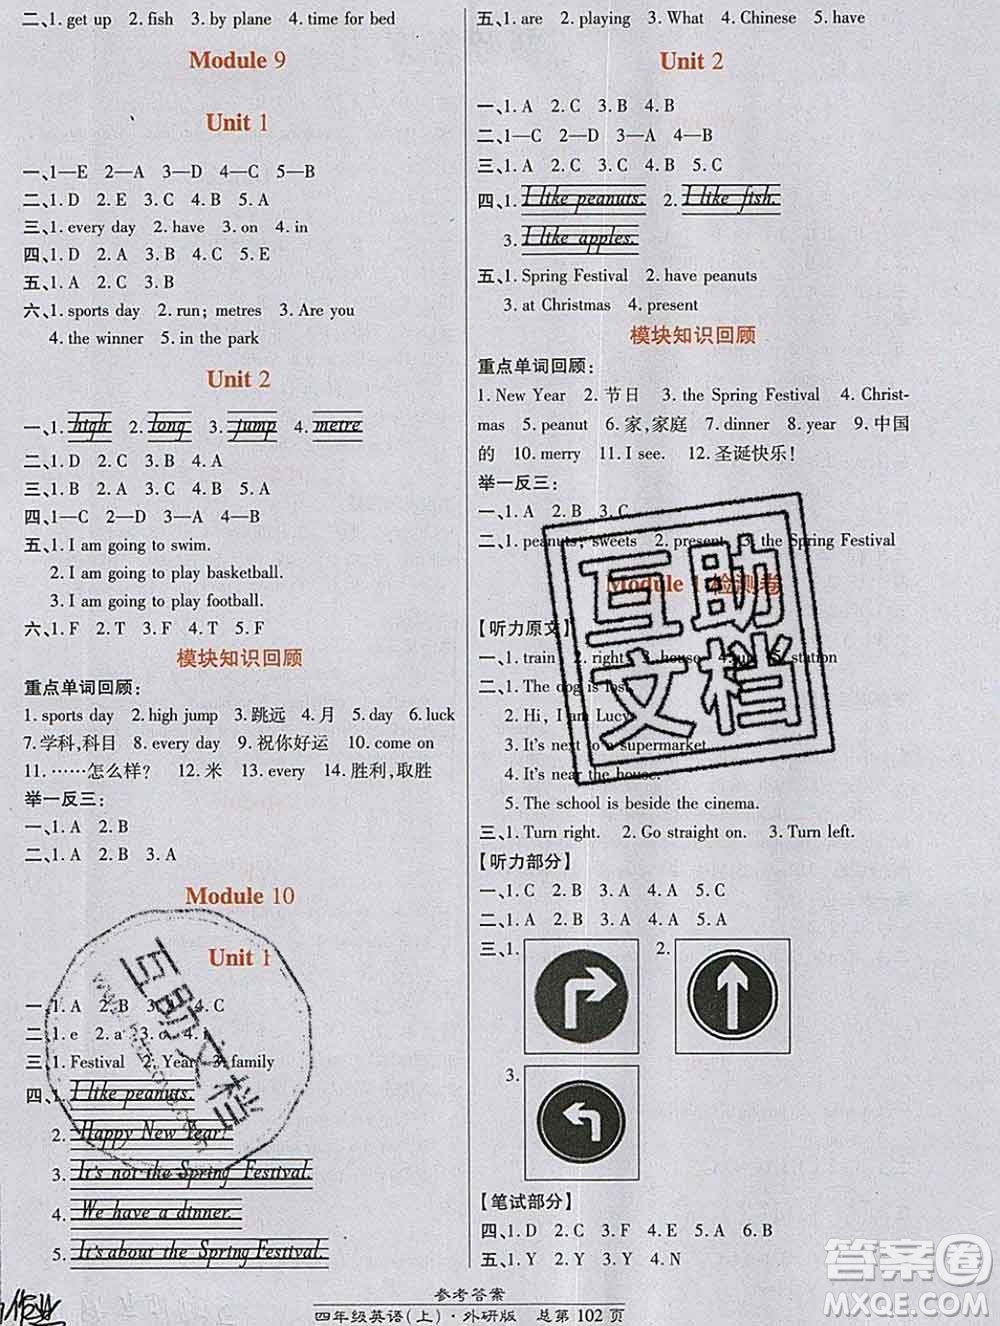 二、1. get up  2. fish  3. by plane  4. time for bed
Module 9
Unit 1
一、1—E  2—A  3—D  4—C  5—B
二、1. D  2. E  3. C  4. B  5. A
三、1. every day  2. have  3. on  4. in
四、1. D  2. A  3. B  4. C  5. E
五、1. A  2. C  3. B
六、1. sports day  2. run; metres  3. Are you
4. the winner  5. in the park
Unit 2
一、1. high  2. long  3. jump  4. metre
二、1. D  2. C  3. B  4. A
三、1. B  2. A  3. D  4. C
四、1—C  2—D  3—A  4—B
五、1. I am going to swim.
2. I am going to play basketball.
3. I am going to play football.
六、1. F  2. T  3. F  4. T
模块知识回顾
重点单词回顾：
1. sports day  2. high jump  3. 跳远  4. 月  5. day  6. luck
7. 学科,科目  8. every day  9. 祝你好运  10. come on
11. ……怎么样?  12. 米  13. every  14. 胜利,取胜
举一反三：
一、1. A  2. B
二、1. A  2. B  3. A
Module 10
Unit 1
一、1. A  2. B  3. 4. C
二、1. e  2. a  3. 4.
三、1. Festival  2. Year  3. family
四、1. I like peanuts.
2. Happy New Year!
3. It's not the Spring Festival.
4. We have a dinner.
5. It's about the Spring Festival.
五、1. are  2. playing  3. What  4. Chinese  5. have
Unit 2
一、1. A  2. C  3. B  4. B
二、1—C  2—D  3—A  4—B
三、1. A  2. C  3. A  4. B  5. C
四、1. I like peanuts.  2. I like fish.
3. I like apples.
五、1. Spring Festival  2. have peanuts
3. at Christmas  4. present
模块知识回顾
重点单词回顾：
1. New Year  2. 节日  3. the Spring Festival  4. Christ-
mas  5. peanut  6. 家,家庭  7. dinner  8. year  9. 中国
的  10. merry  11. I see.  12. 圣诞快乐!
举一反三：
一、1. A  2. B  3. C
二、1. peanuts; sweets  2. present  3. the Spring Festival
Module 1 检测卷
【听力原文】
一、1. train  2. right  3. house  4. 5. station
二、1. The dog is lost.
2. Hi, I am Lucy.
3. It's next to a supermarket.
4. It's near the house.
5. The school is beside the cinema.
三、1. Turn right.  2. Go straight on.  3. Turn left.
【听力部分】
一、1. C  2. B  3. A  4. A  5. C
二、1. A  2. B  3. A  4. B  5. A
三、1.  2.
3.
【笔试部分】
四、1. D  2. C  3. F  4. E  5. A  6. B
五、1. Y  2. Y  3. Y  4. N
参考答案
四年级英语(上)·外研版  总第 102 页
互助文档
互助文档
答案圈
MXQE.COM